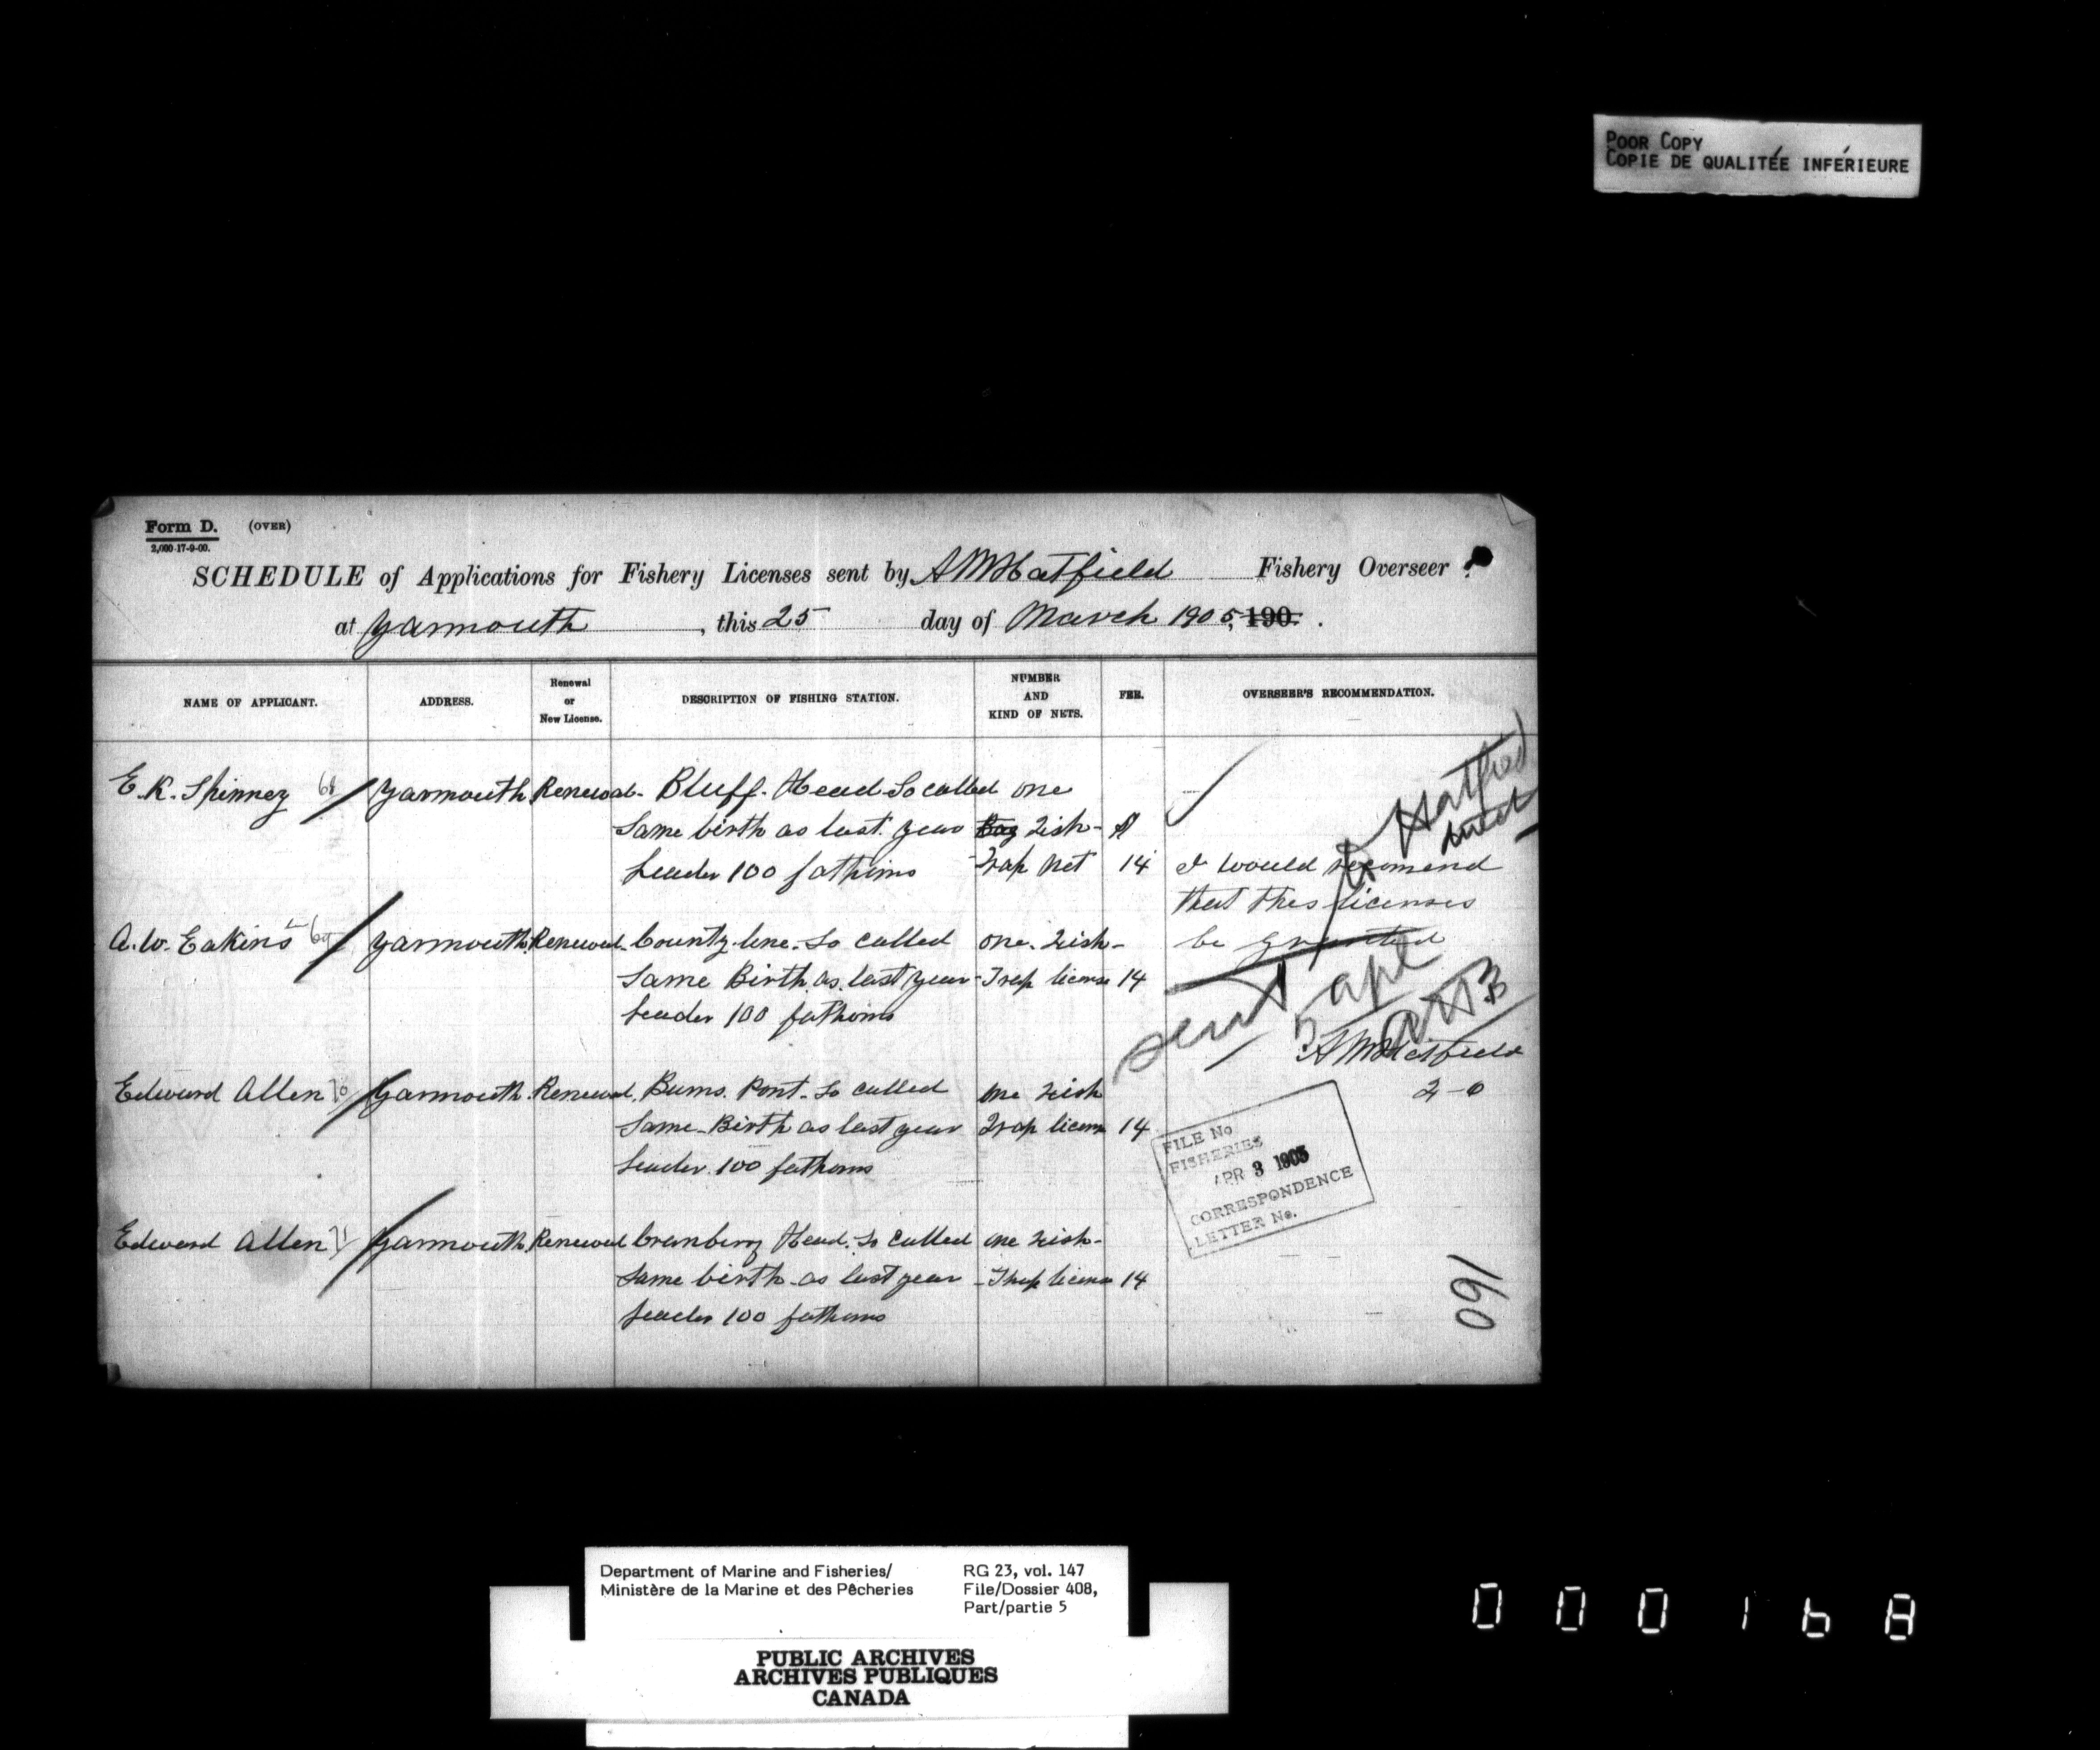 POOR COPY
COPIE DE QUALITÉE INFÉRIEURE
Form D. (OVER)
2,000-17-9-00.
SCHEDULE of Applications for Fishery Licenses sent by A M Hatfield Fishery Overseer
at Yarmouth, this 25 day of March 1905, 190 .
NAME OF APPLICANT. ADDRESS. Renewal or New License. DESCRIPTION OF FISHING STATION. NUMBER AND KIND OF NETS. FEE. OVERSEER'S RECOMMENDATION.
E. K. Spinney 68 Yarmouth Renewal- Bluff. Head So called one
Same birth as last year Bag Fish- $
Leader 100 fathims Trap Net 14 I would recomend
that this licenses
A. W. Eakins 69 Yarmouth Renewal- County line. So called one. Fish- be granted
Same Birth. as. last year- Trap license 14
Leader 100 fathoms
Hatfield
sent 5 apl
A M Hatfield
Edward Allen 70 Yarmouth Renewal. Burns. Pont- So called one Fish 2-0
Same- Birth as last year Trap license 14
Leader. 100 fathoms
FILE No
FISHERIES
APR 3 1905
CORRESPONDENCE
LETTER No.
Edward Allen 71 Yarmouth Renewal Cranberry Head. So called one Fish-
Same birth- as last year -Trap license 14
Leader 100 fathoms
160
Department of Marine and Fisheries/ RG 23, vol. 147
Ministère de la Marine et des Pêcheries File/Dossier 408,
Part/partie 5
PUBLIC ARCHIVES
ARCHIVES PUBLIQUES
CANADA
000168